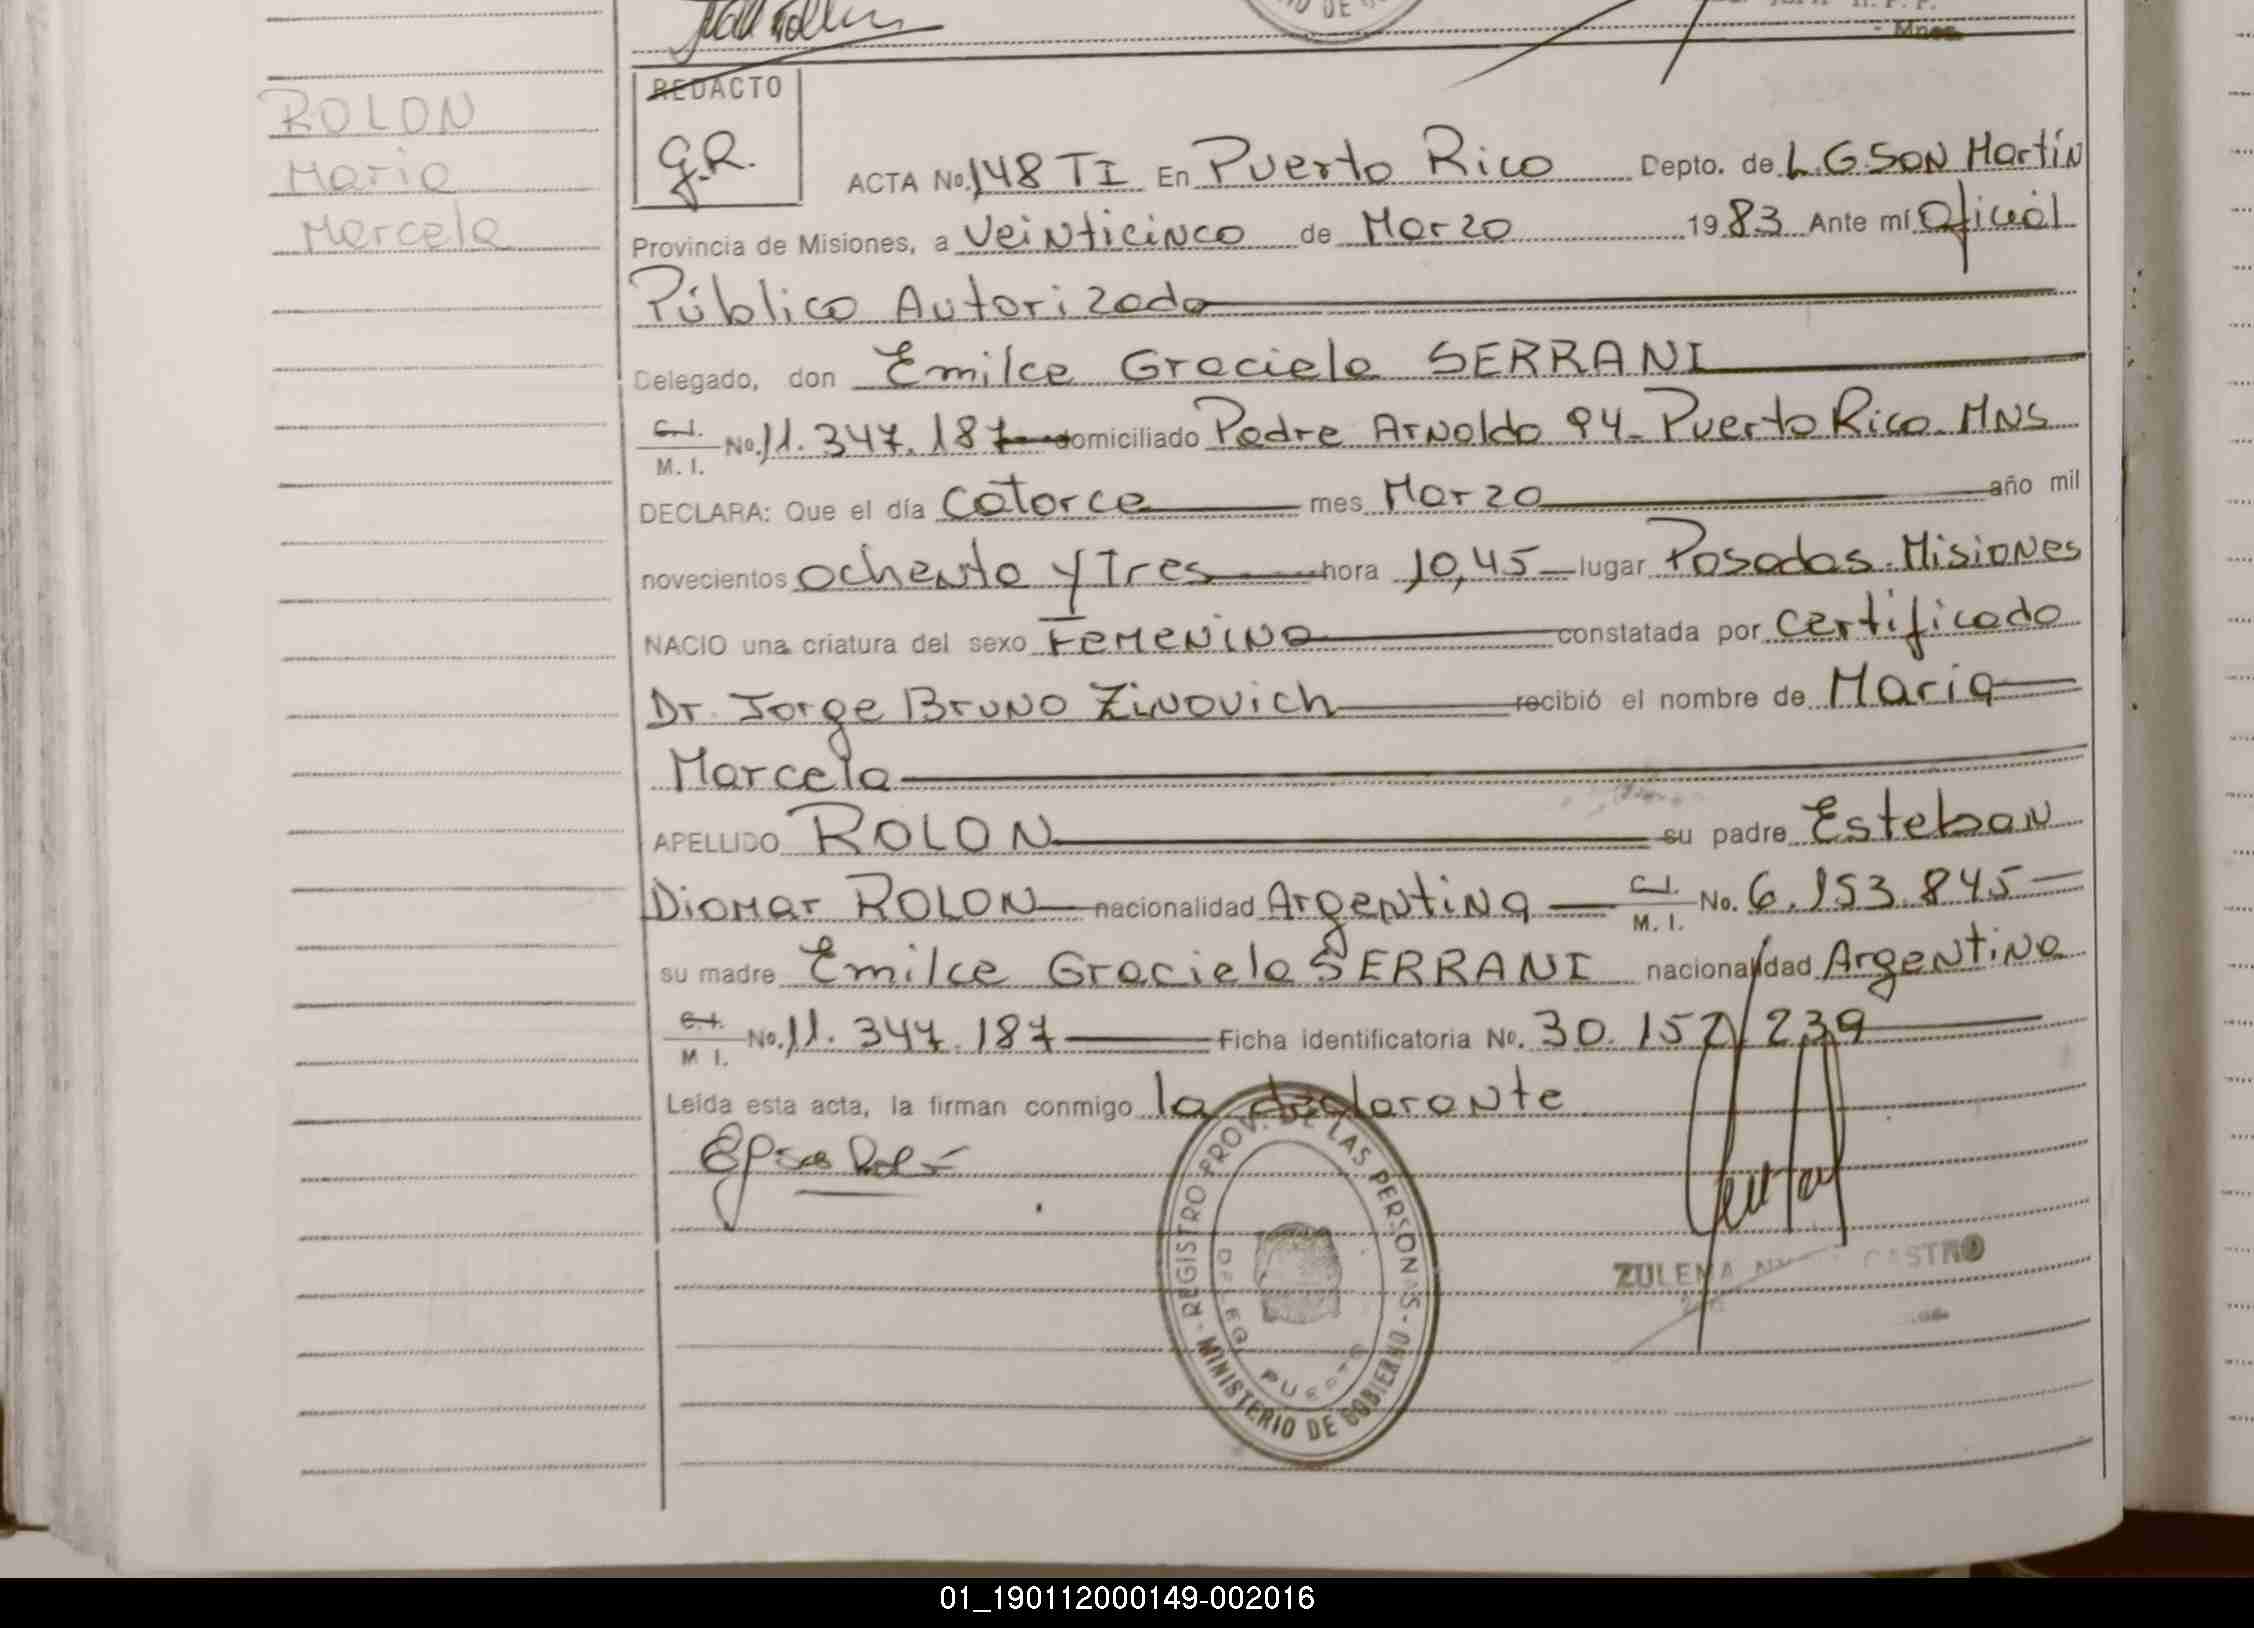 DE
Mnes.
REDACTO
G.R.
ROLON
Maria
Marcela
ACTA No. 148 TI En Puerto Rico Depto. de L.G.San Martín
Provincia de Misiones, a Veinticinco de Marzo 1983 Ante mí Oficial
Público Autorizado
Delegado, don Emilce Graciela SERRANI
C.I. M.I. No. 11.347.187 domiciliado Padre Arnoldo 94- Puerto Rico-MNS
DECLARA: Que el día catorce mes Marzo año mil
novecientos ochenta y Tres hora 10,45 lugar Posadas-Misiones
NACIO una criatura del sexo Femenino constatada por certificado
Dr. Jorge Bruno Zinovich recibió el nombre de Maria
Marcela
APELLIDO ROLON su padre Esteban
Diomar ROLON nacionalidad Argentina C.I. M.I. No. 6.153.845
su madre Emilce Graciela SERRANI nacionalidad Argentina
C.I. M.I. No. 11.347.187 Ficha identificatoria No. 30.157.239
Leída esta acta, la firman conmigo la declarante
REGISTRO PROV. DE LAS PERSONAS - MINISTERIO DE GOBIERNO
PUERTO
ZULEMA CASTRO
01_190112000149-002016